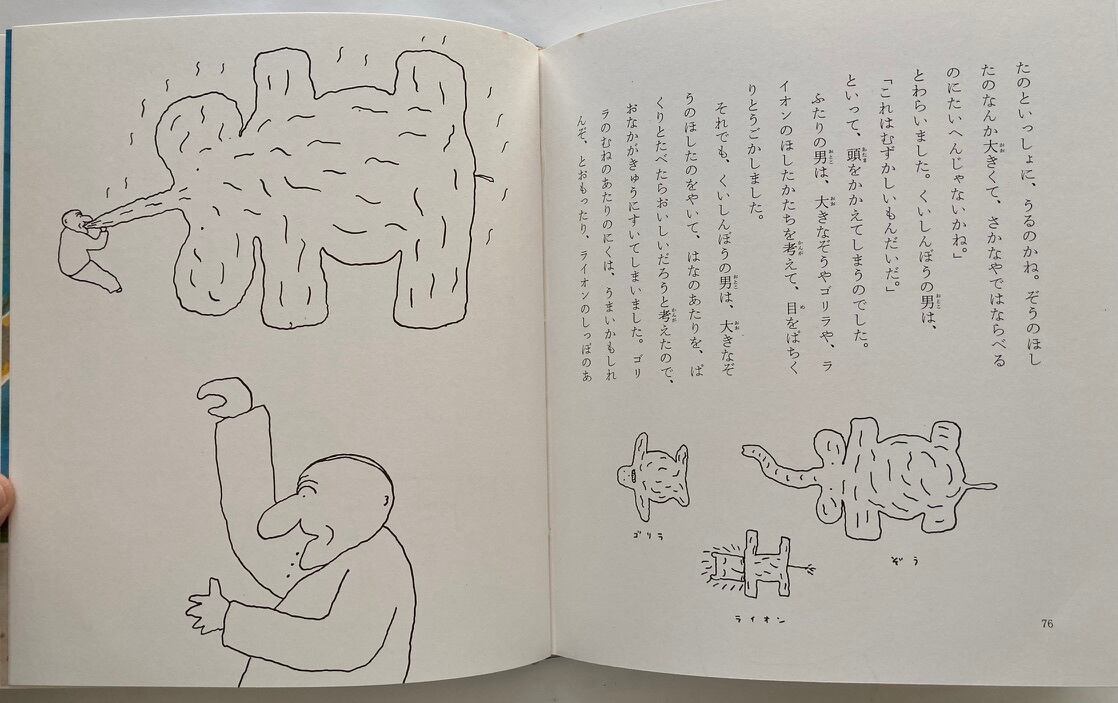 たのといっしょに、うるのかね。ぞうのほし
たのなんか大きくて、さかなやではならべる
のにたいへんじゃないかね。」
とわらいました。くいしんぼうの男は、
「これはむずかしいもんだいだ。」
といって、頭をかかえてしまうのでした。
ふたりの男は、大きなぞうやゴリラや、ラ
イオンのほしたかたちを考えて、目をぱちく
りとうごかしました。
それでも、くいしんぼうの男は、大きなぞ
うのほしたのをやいて、はなのあたりを、ぱ
くりとたべたらおいしいだろうと考えたので、
おなかがきゅうにすいてしまいました。ゴリ
ラのむねのあたりのにくは、うまいかもしれ
んぞ、とおもったり、ライオンのしっぽのあ
ゴリラ
ぞう
ライオン
76